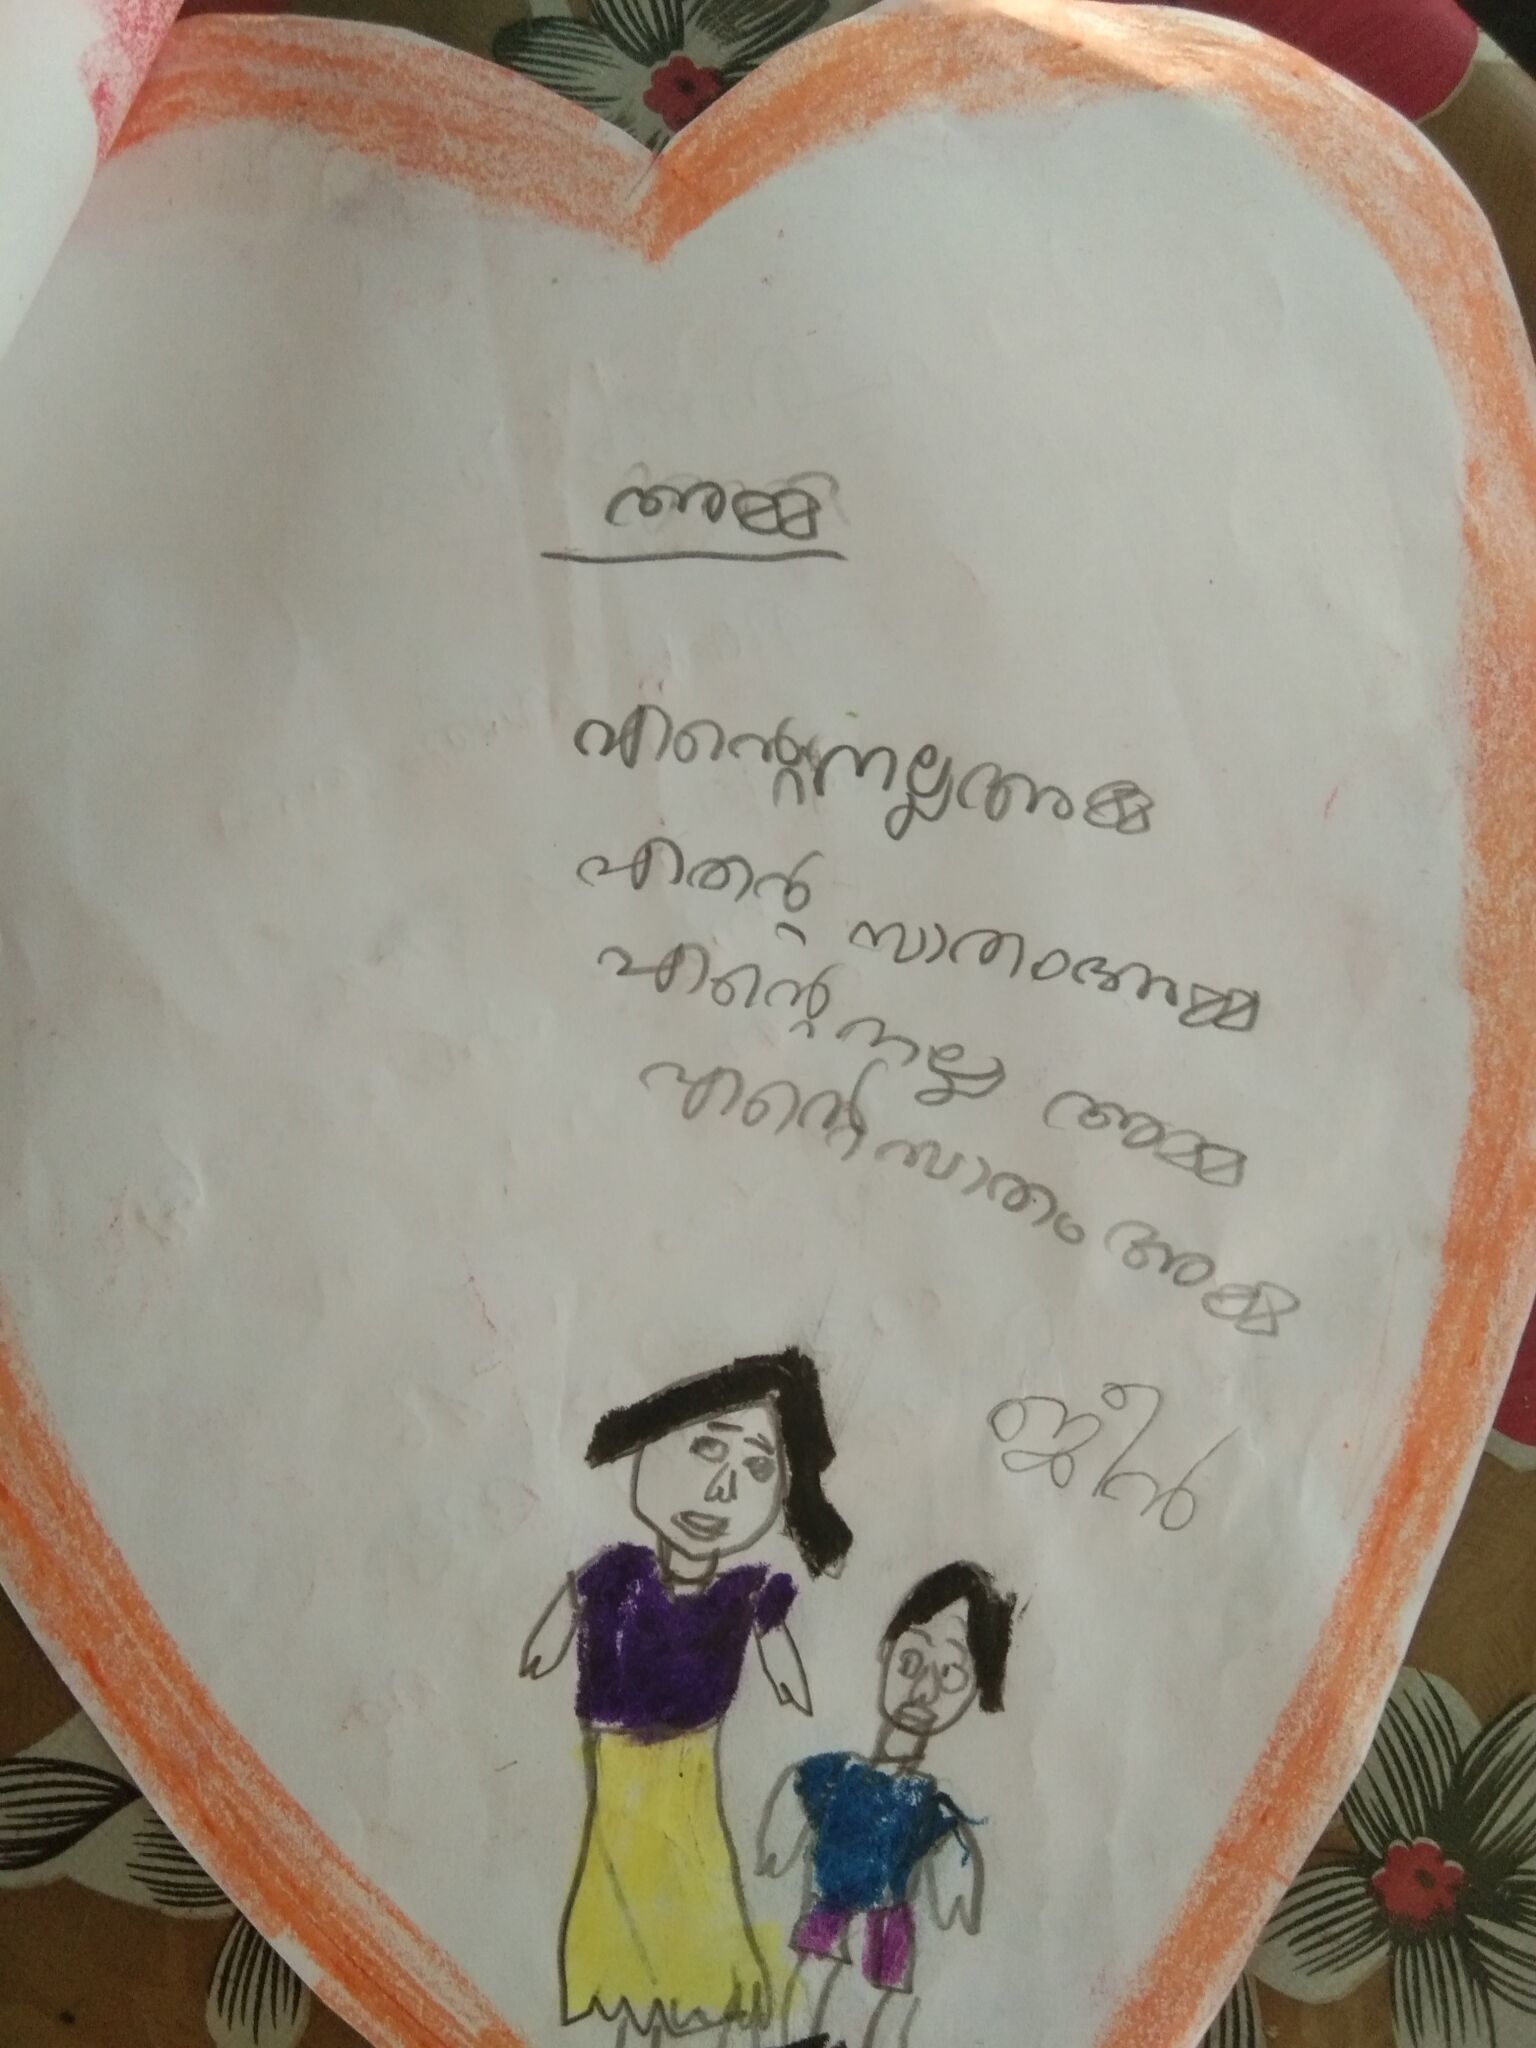 അമ്മ
എന്റെ നല്ല അമ്മ
എതന്റ സ്വാതം അമ്മ
എന്റെ നല്ല അമ്മ
എന്റെ സ്വാതം അമ്മ
ജീൻ